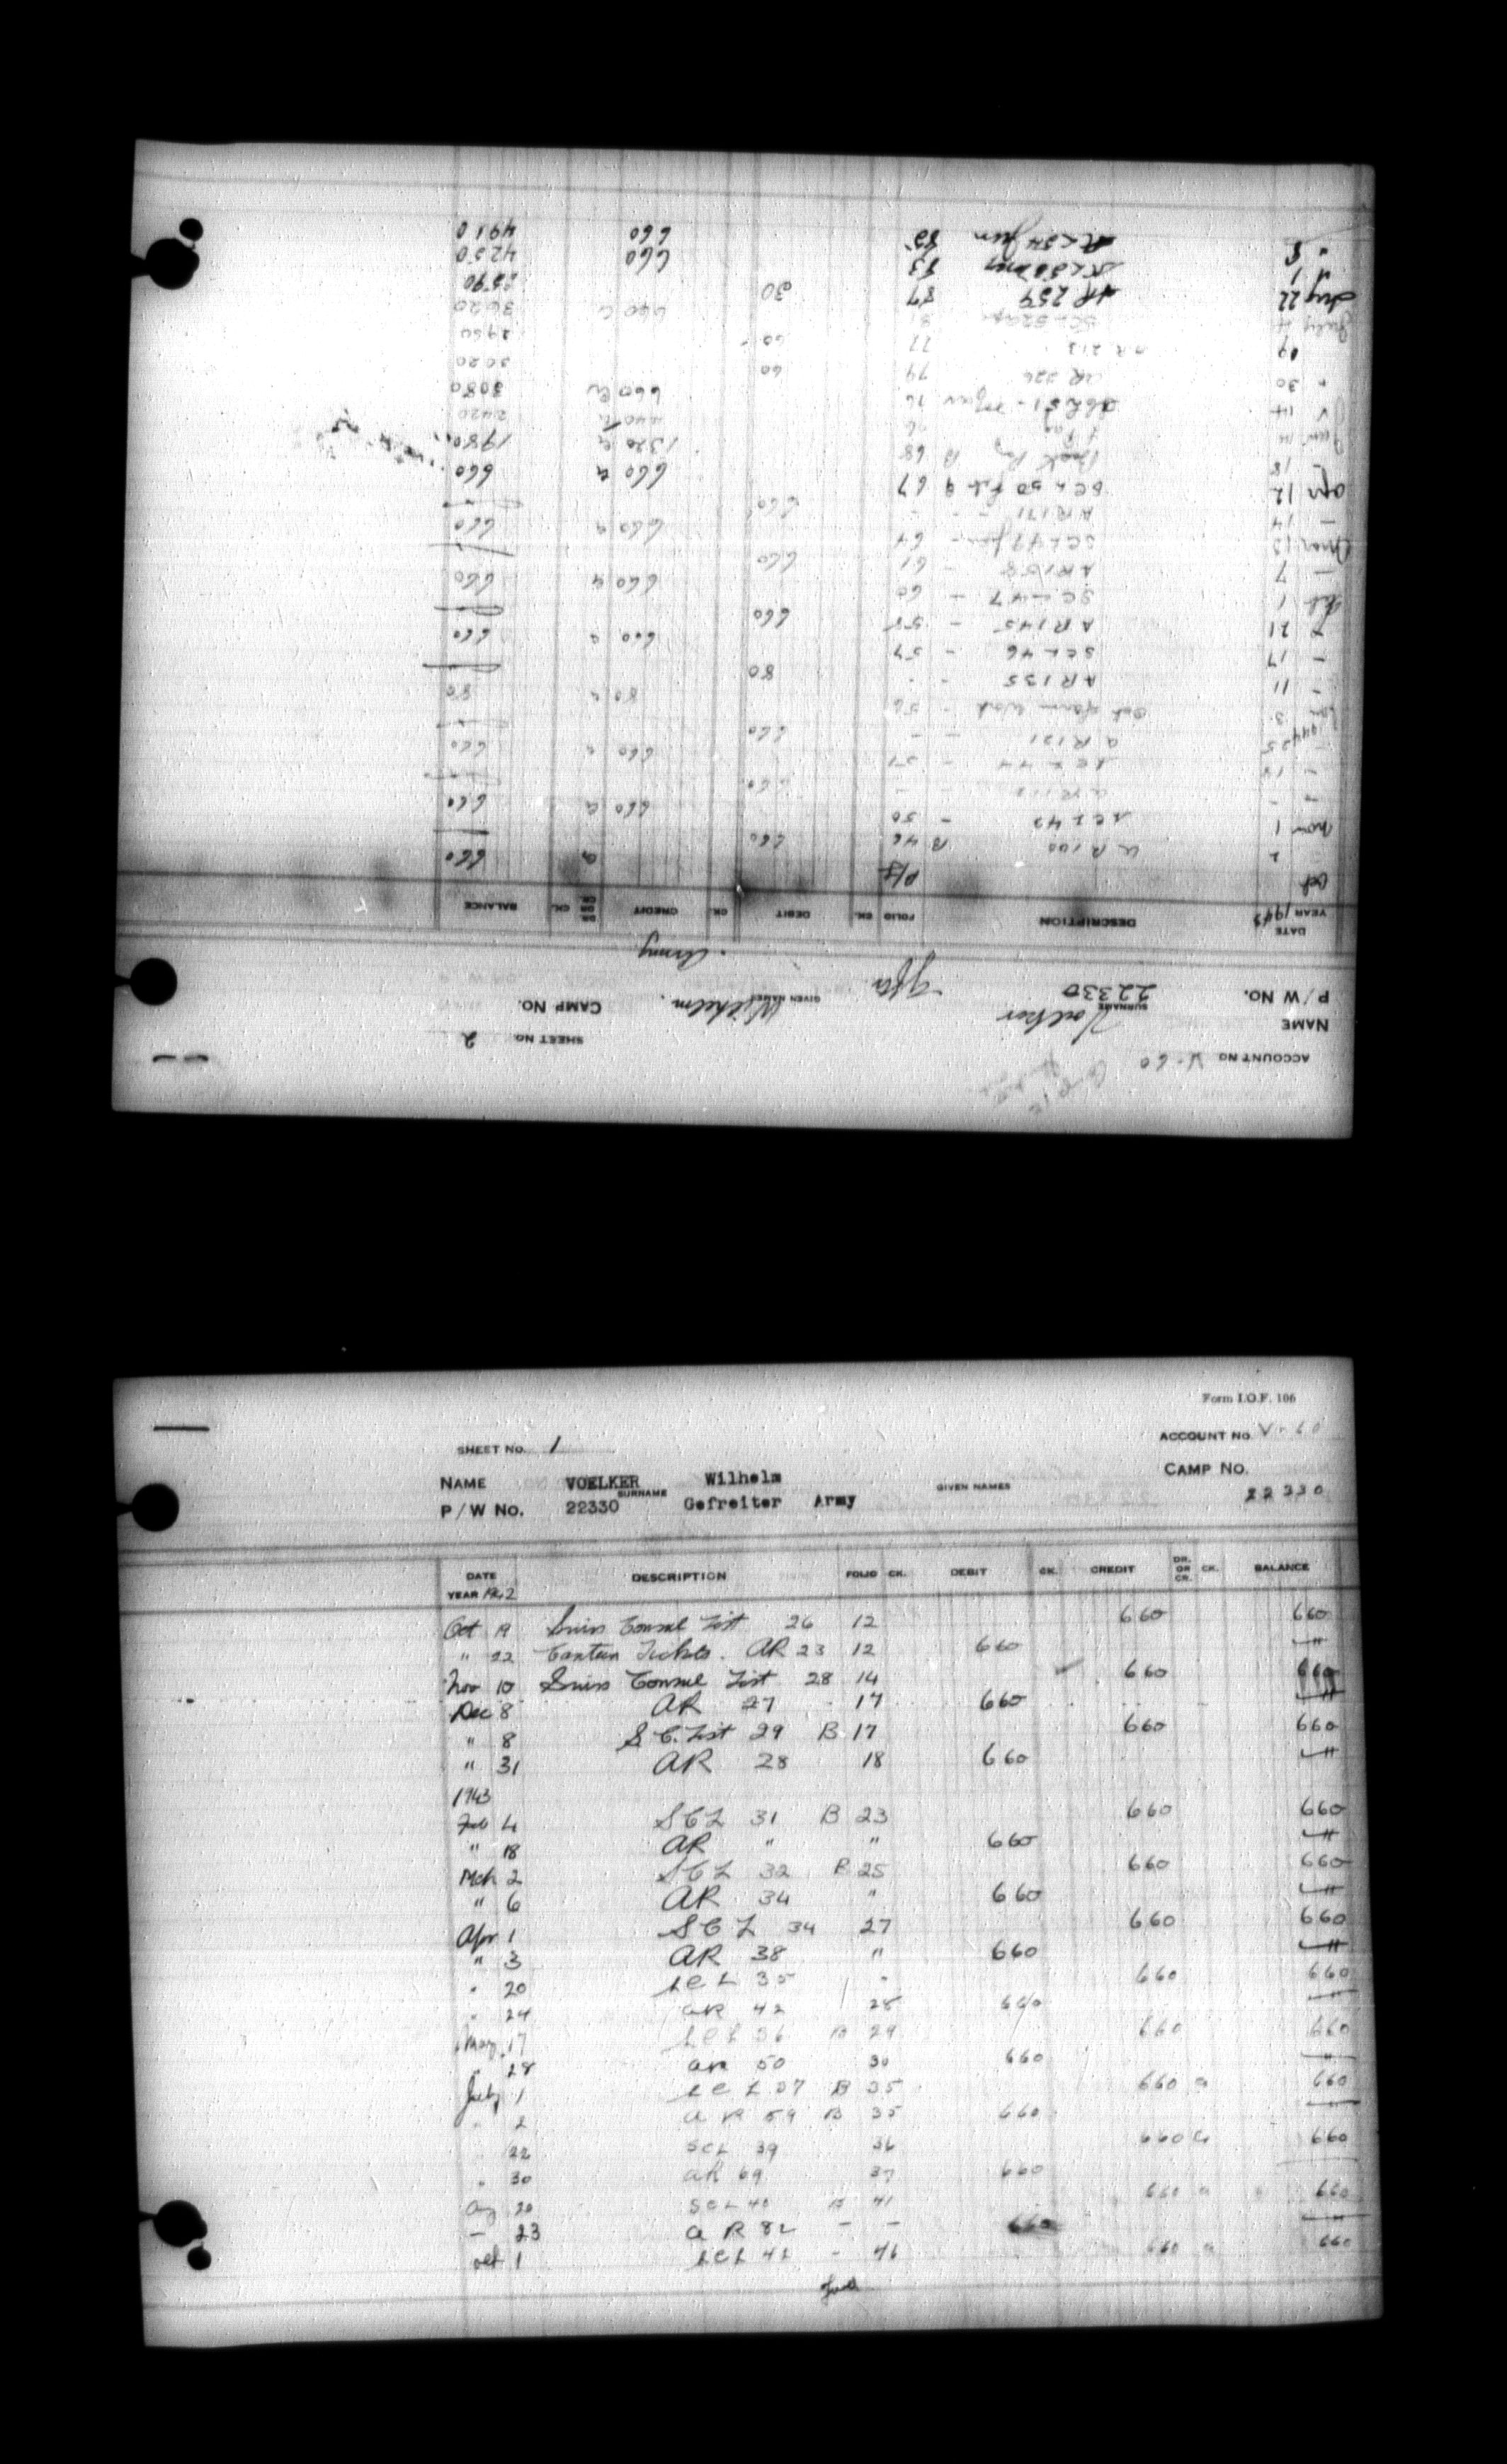 ACCOUNT NO V-60 SHEET NO. 2
NAME Voelker Wilhelm.
SURNAME GIVEN NAMES
P/W NO. 22330 Gfr. Army CAMP NO.
DATE DESCRIPTION FOLIO CK. DEBIT CK. CREDIT DR. OR CR. CK. BALANCE
YEAR 1943
Oct 660
2 AR 100 B 46 660
Nov 1 SCL 42 - 50 660 a 660
- - 660
- SCL 44 - 660 a 660
- 25 AR 121 - - 660
1944
Jan 3 Work - 56 80 a 80
- 11 AR 135 - 80
- 17 SCL 46 - 57 660 a 660
- 21 AR 145 - 58 660
Feb 1 SCL 47 - 60 660 a 660
- 7 AR 158 - 61 660
Mar 13 SCL 49 64 660 a 660
- 14 AR 171 - - 660
Apr 12 SCL 50 Feb 67 660 a 660
- 18 Back Pay B 68 1320 a 1980
June Pay 76 440 2420
14 51 - Mar 76 660 3080
" 30 AR 226 79 60 3020
19 AR 213 77 60 2960
July 4 SCL 52 Apr 660 3620
Aug 22 AR 259 87 30 3590
1 SCL 53 May 83 660 4250
" 8 SCL 54 Jun 85 660 4910
Form I.O.F. 106
SHEET NO. 1 ACCOUNT NO. V-60
NAME VOELKER Wilhelm GIVEN NAMES CAMP NO.
SURNAME
P/W NO. 22330 Gefreiter Army 22330
DATE DESCRIPTION FOLIO CK. DEBIT CK. CREDIT DR. OR CR. CK. BALANCE
YEAR 1942
Oct 19 Swiss Consul List 26 12 660 660
" 22 Canteen Tickets. AR 23 12 660 "
Nov 10 Swiss Consul List 28 14 660 660
Dec 8 AR 27 17 660 "
" 8 S.C. List 29 B 17 660 660
" 31 AR 28 18 660 "
1943
Feb 4 SCL 31 B 23 660 660
" 18 AR " " 660 "
Mch 2 SCL 32 B 25 660 660
" 6 AR 34 " 660 "
Apr 1 SCL 34 27 660 660
" 3 AR 38 " 660 "
" 20 SCL 35 " 660 660
" 24 AR 42 28 660 "
May 17 SCL 36 B 29 660 660
" 28 AR 50 30 660 "
July 1 SCL 37 B 35 660 a 660
" 2 AR 59 B 35 660 "
22 SCL 39 36 660 a 660
" 30 AR 69 37 660
Aug 20 SCL 40 B 41 660 a 660
- 23 AR 82 - - 660 "
Oct 1 SCL 41 - 46 660 a 660